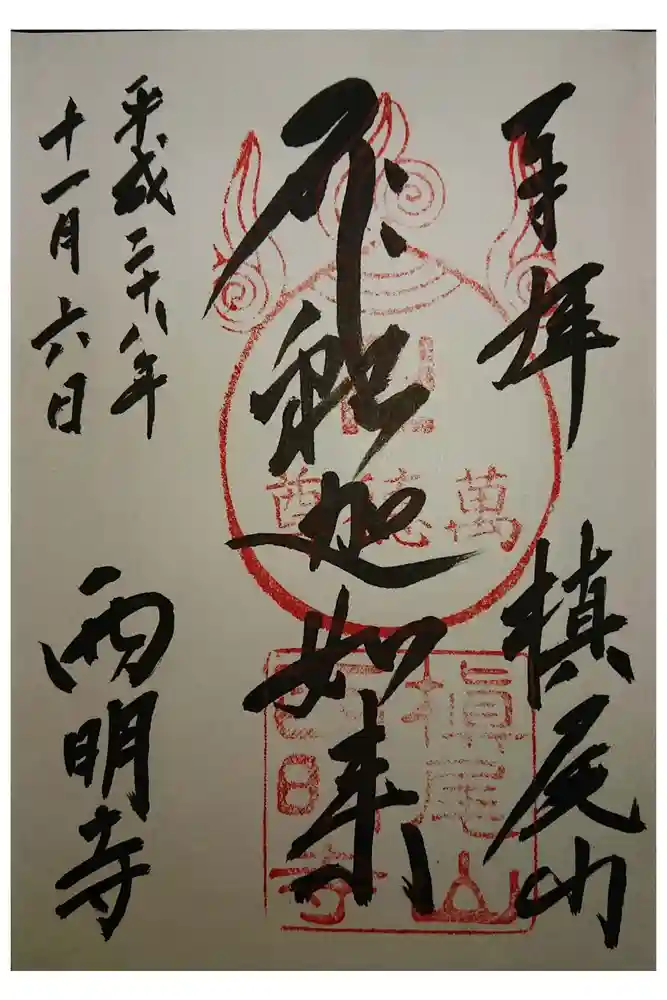 奉拝
槙尾山
釈迦如来
萬徳尊
槇尾山
西明寺
平成二十八年
十一月六日
西明寺